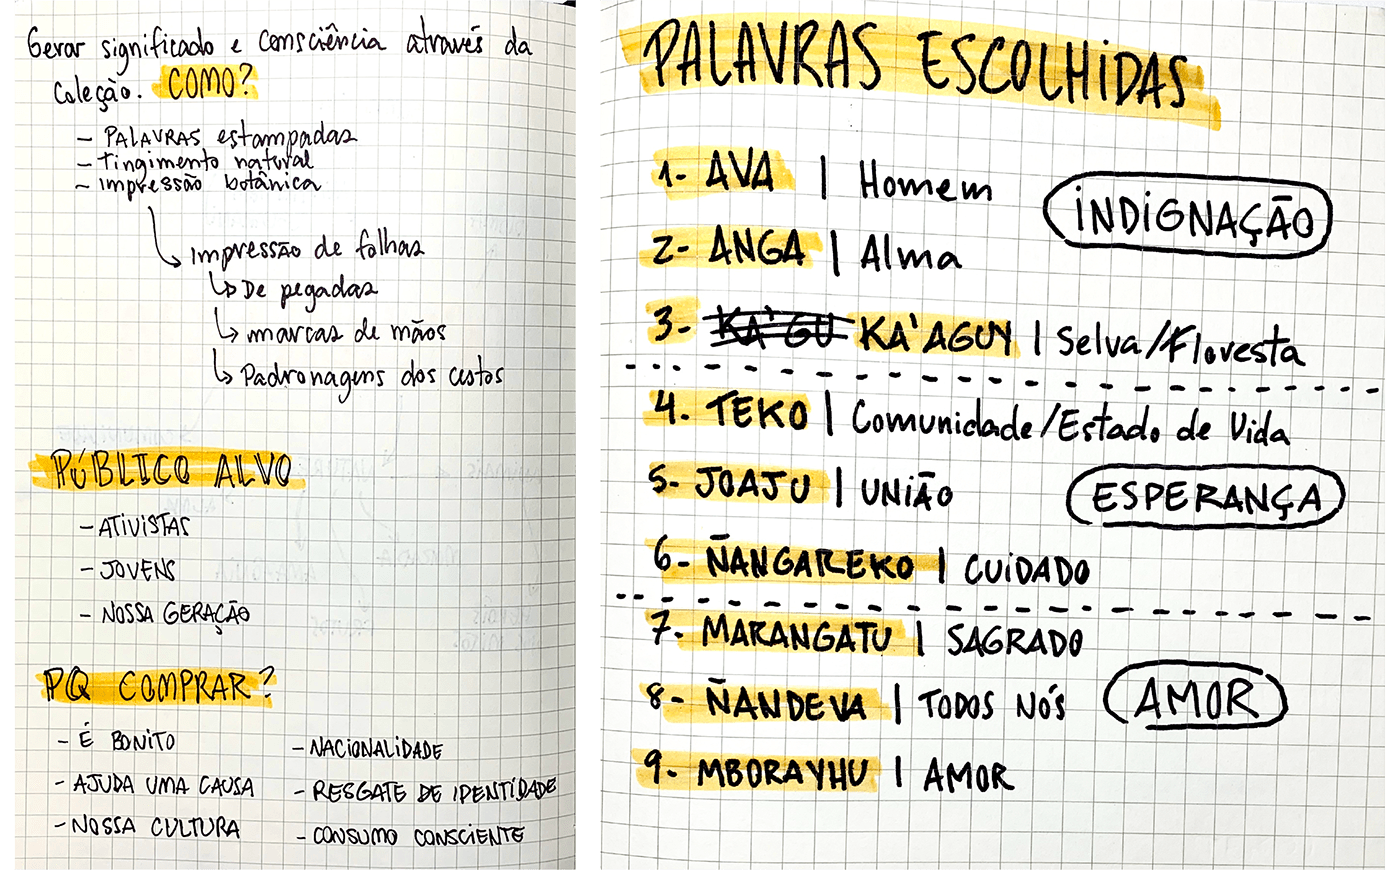 Gerar significado e consciência através da
Coleção. COMO?
- PALAVRAS estampadas
- Tingimento natural
- Impressão botânica
Impressão de folhas
De pegadas
marcas de mãos
Padronagens dos cestos
PÚBLICO ALVO
- ATIVISTAS
- JOVENS
- NOSSA GERAÇÃO
PQ COMPRAR?
- É BONITO
- AJUDA UMA CAUSA
- NOSSA CULTURA
- NACIONALIDADE
- RESGATE DE IDENTIDADE
- CONSUMO CONSCIENTE
PALAVRAS ESCOLHIDAS
1- AVA | Homem
2- ANGA | Alma
INDIGNAÇÃO
3- KA'GU KA'AGUY | Selva/Floresta
4. TEKO | Comunidade/Estado de Vida
5- JOAJU | UNIÃO
ESPERANÇA
6- ÑANGAREKO | CUIDADO
7- MARANGATU | SAGRADO
8- ÑANDEVA | TODOS NÓS
AMOR
9- MBORAYHU | AMOR